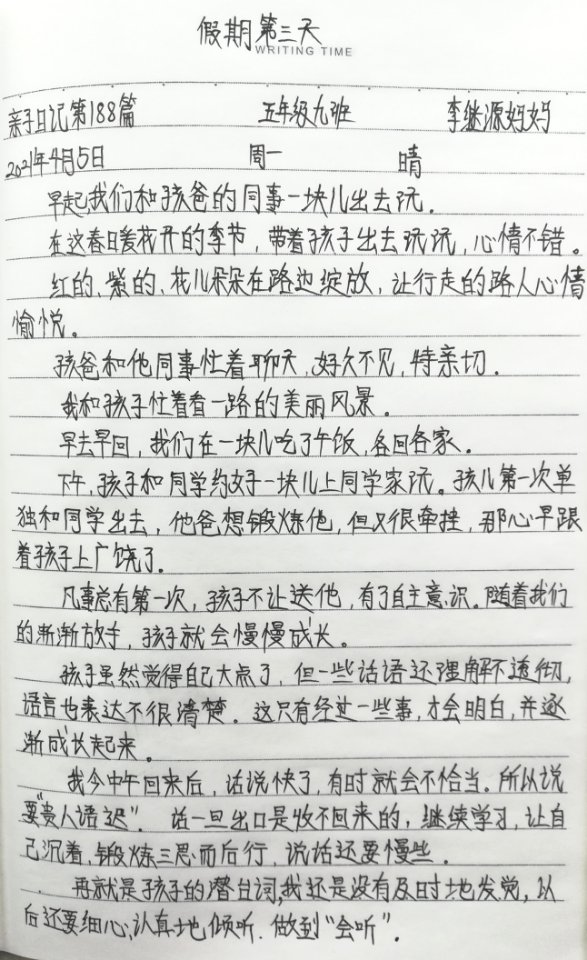 假期第三天
WRITING TIME
亲子日记第188篇 五年级九班 李继源妈妈
2021年4月5日 周一 晴
早起,我们和孩爸的同事一块儿出去玩.
在这春日暖花开的季节,带着孩子出去玩玩,心情不错。
红的、紫的、花儿朵朵在路边绽放,让行走的路人心情
愉悦。
孩爸和他同事忙着聊天,好久不见,特亲切.
我和孩子忙着看一路的美丽风景。
早去早回,我们在一块儿吃了午饭,各回各家.
下午,孩子和同学约好一块儿上同学家玩。孩儿第一次单
独和同学出去,他爸想锻炼他,但又很牵挂,那心早跟
着孩子上广饶了.
凡事总有第一次,孩子不让送他,有了自主意识.随着我们
的渐渐放手,孩子就会慢慢成长。
孩子虽然觉得自己大点了,但一些话语还理解不透彻,
语言也表达不很清楚.这只有经过一些事,才会明白,并逐
渐成长起来。
我今中午回来后,话说快了,有时就会不恰当。所以说
要"贵人语迟".话一旦出口是收不回来的,继续学习,让自
己沉着,锻炼三思而后行,说话还要慢些.
再就是孩子的潜台词,我还是没有及时地发觉,以
后还要细心,认真地倾听.做到"会听".